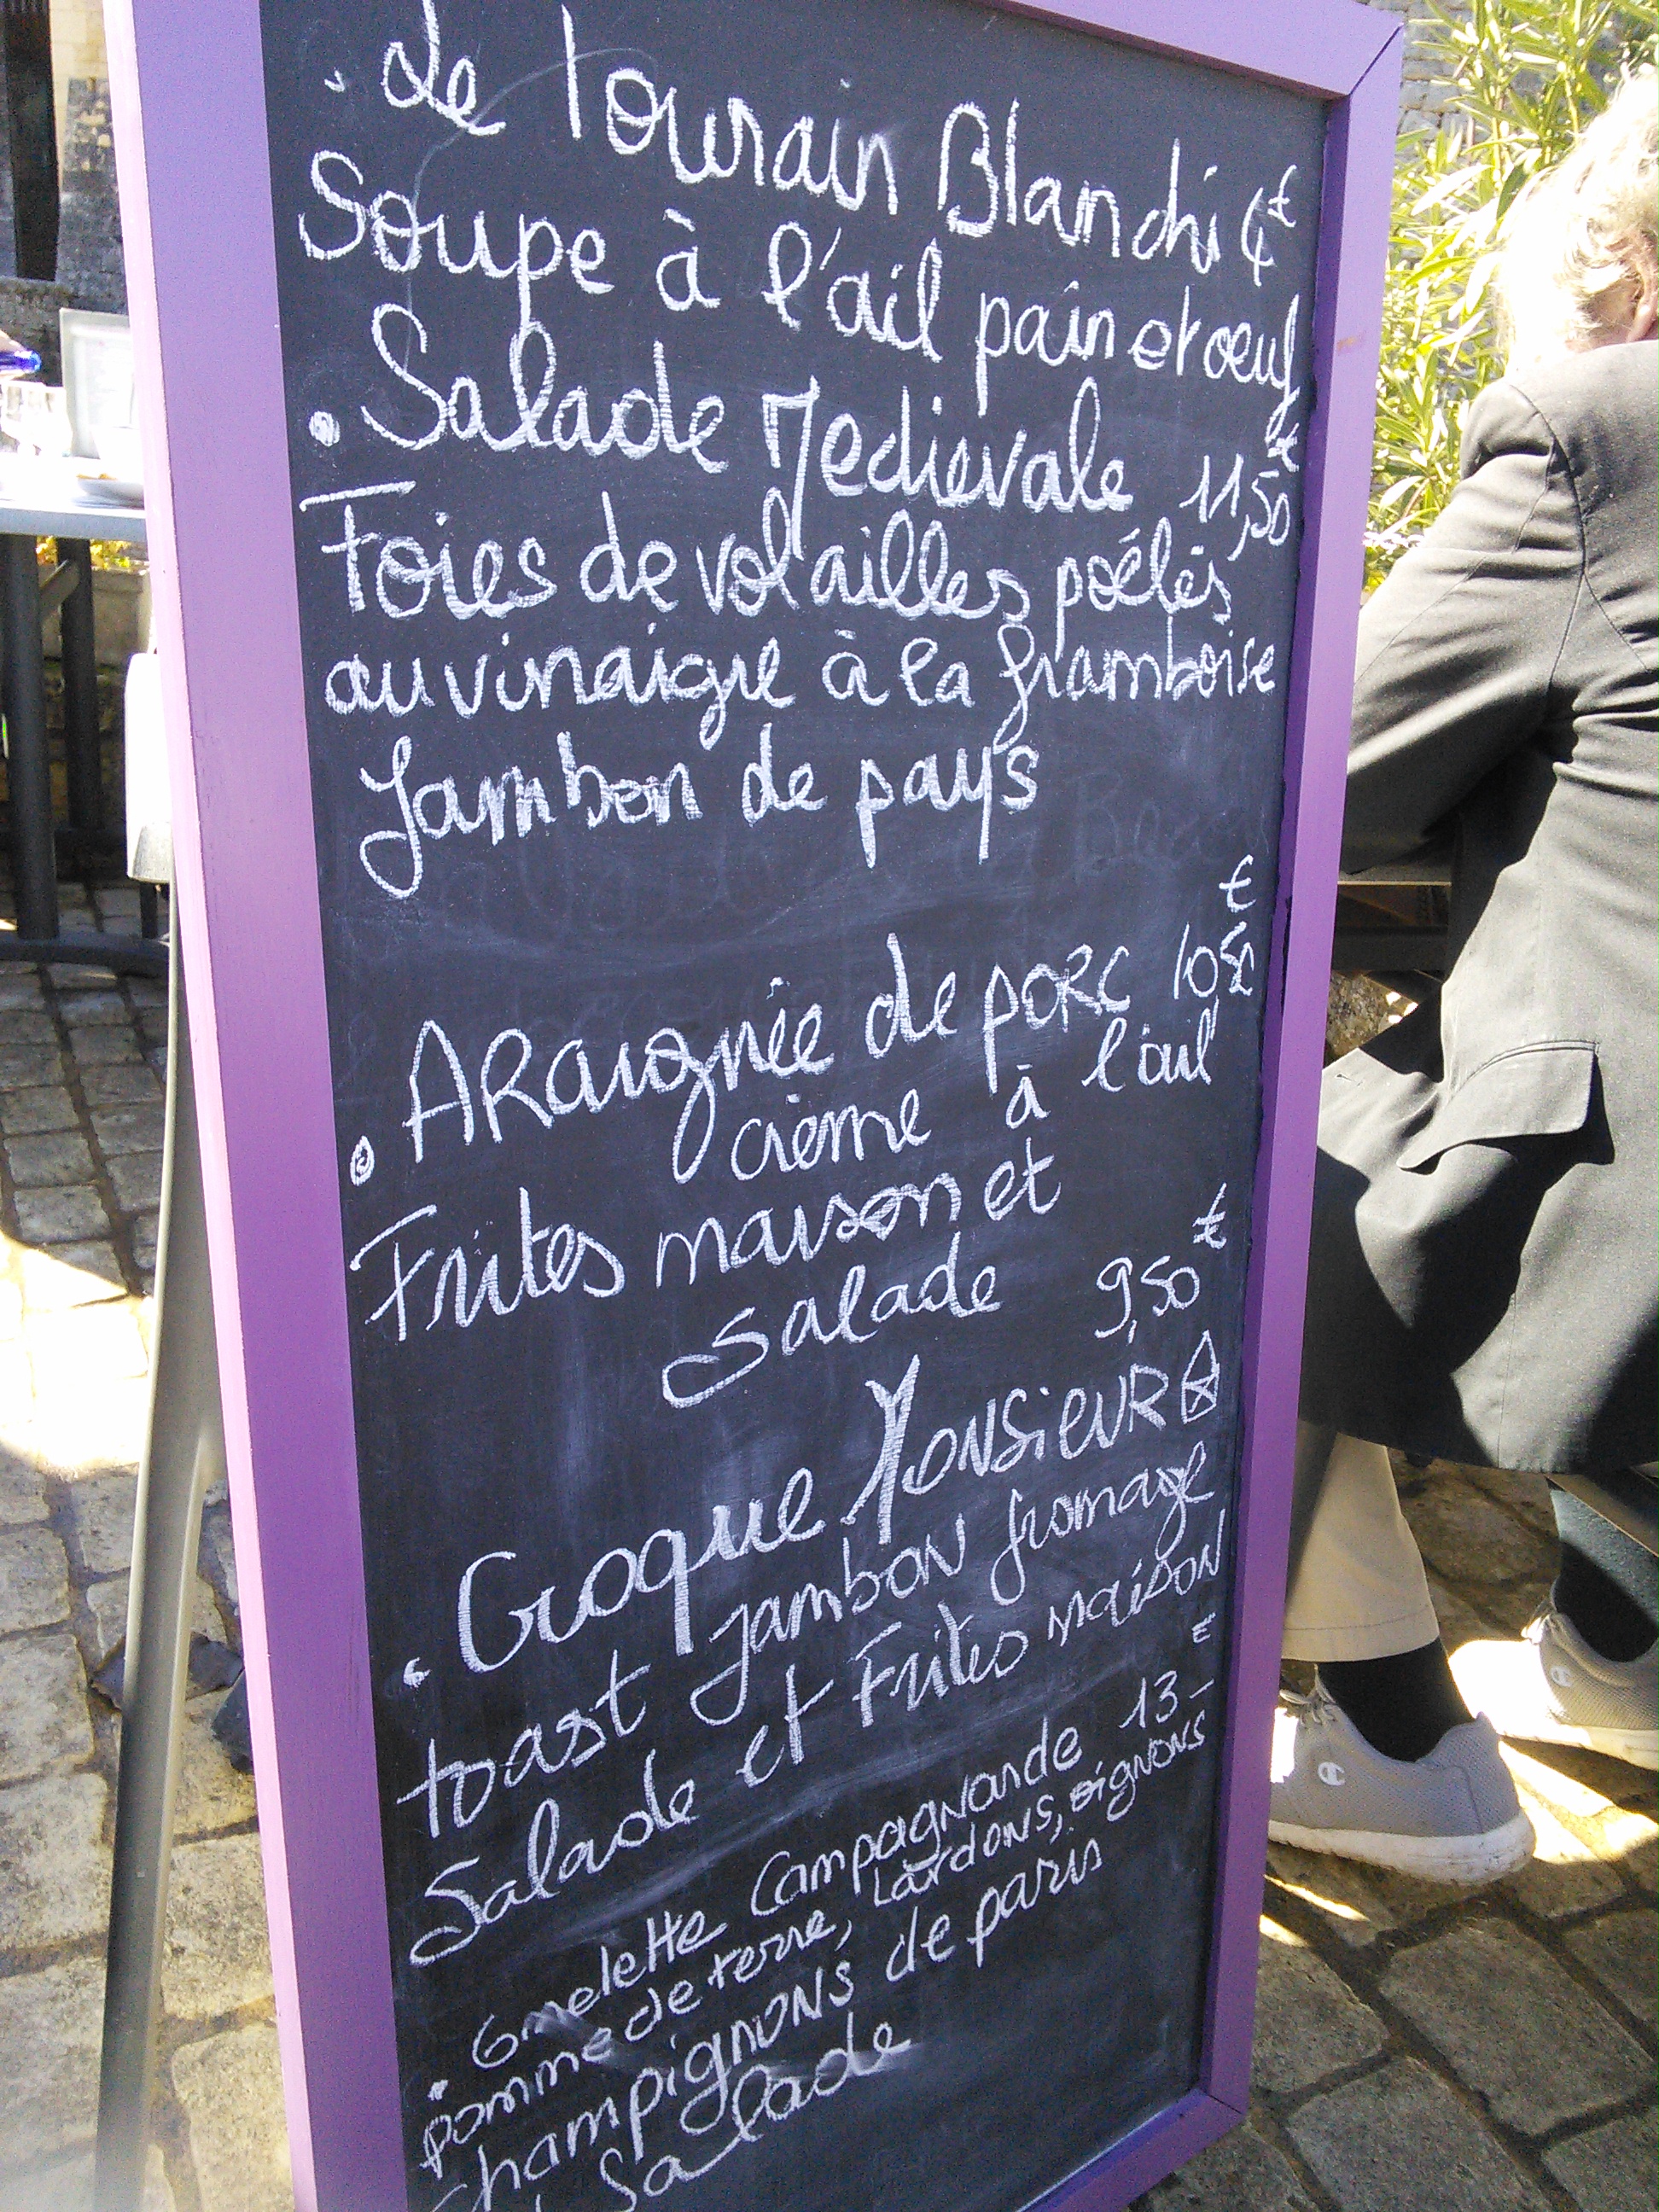 . Le Tourain Blanchi 4€
Soupe à l'ail pain et oeuf
. Salade Medievale 11,50€
Foies de volailles poélés
au vinaigre à la framboise
Jambon de pays
. ARaignée de porc 10€50
crème à l'ail
Frites maison et
salade
9,50€
. Croque MONSiEUR
toast jambon fromage
Salade et Frites maison
. Omelette Campagnarde 13-€
pomme de terre, Lardons, oignons
champignons de paris
Salade